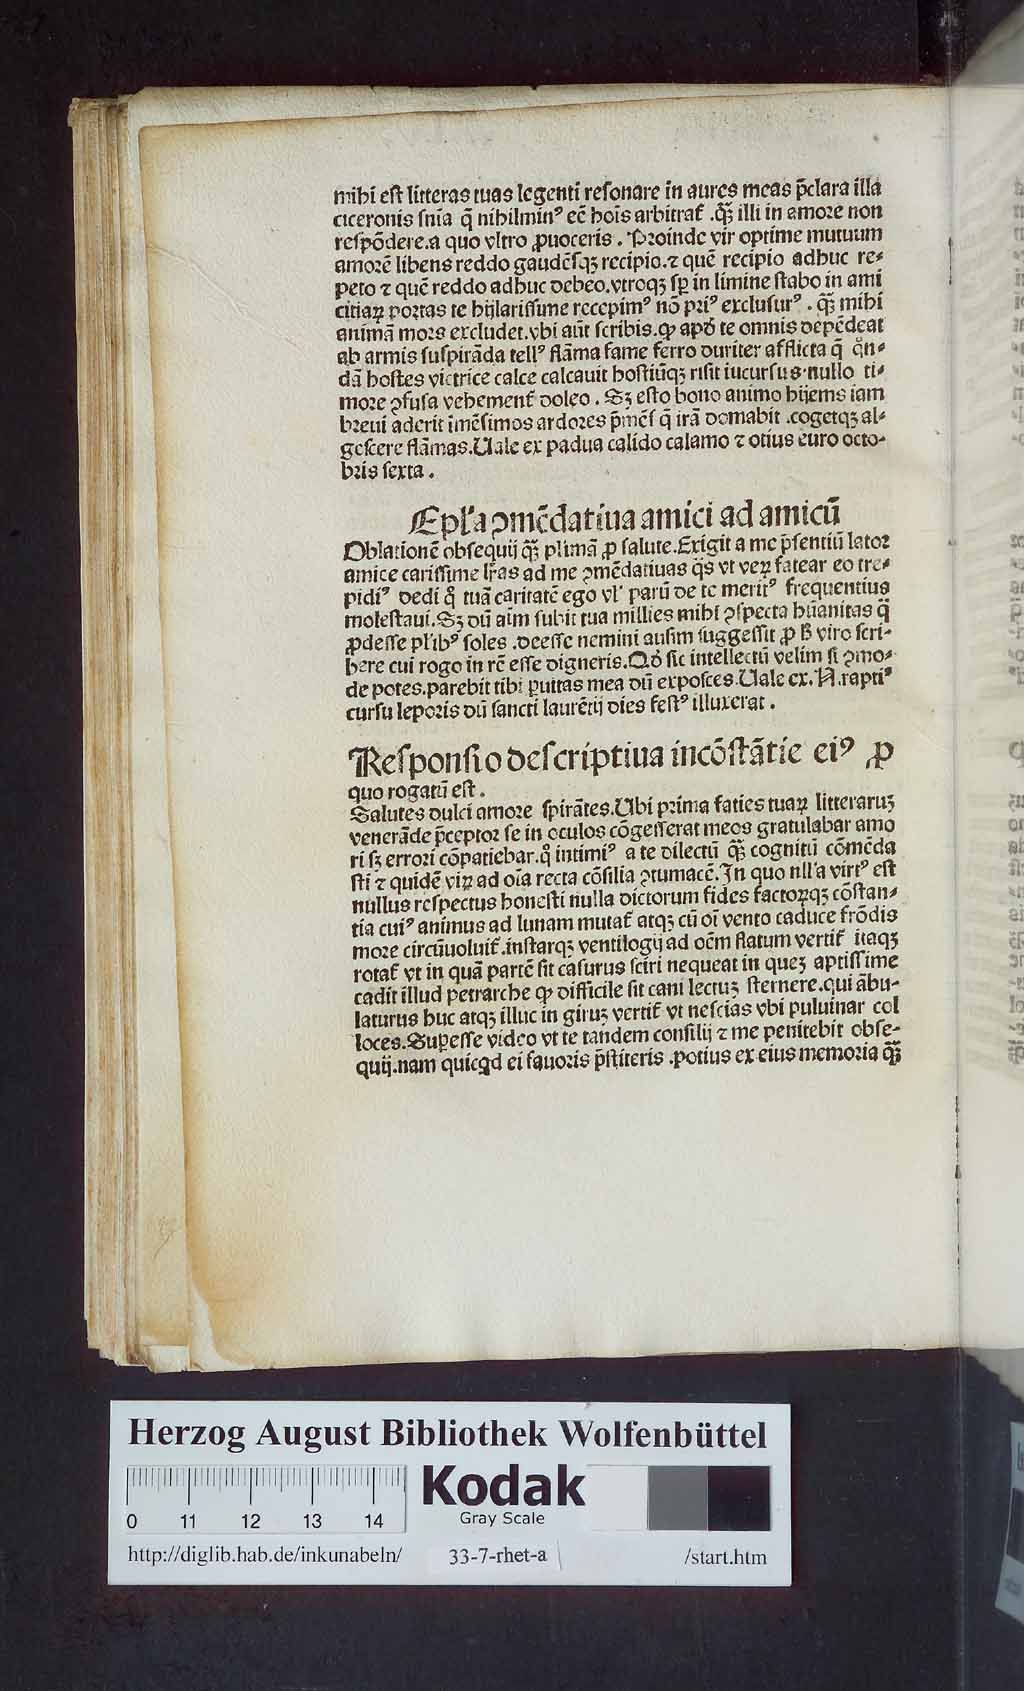 mihi est litteras tuas legenti resonare in aures meas p̄clara illa
ciceronis sn̄ia q̄ nihilminꝰ eē hoīs arbitrat᷑ .qꝫ̄ illi in amore non
respōdere.a quo vltro ꝓuoceris . Proinde vir optime mutuum
amorē libens reddo gaudēsqꝫ recipio.⁊ quē recipio adhuc re⸗
peto ⁊ quē reddo adhuc debeo.vtroqꝫ sꝑ in limine stabo in ami
citiaꝝ portas te hijlarissime recepimꝰ nō priꝰ exclusurꝰ . qꝫ̄ mihi
animā mors excludet.vbi aūt scribis.ꝙ apd̓ te omnis depēdeat
ab armis suspirāda tellꝰ flāma fame ferro duriter afflicta q̄ qn̊⸗
dā hostes victrice calce calcauit hostiūqꝫ risit iucursus nullo ti⸗
more ꝯfusa vehement᷑ doleo . Sꝫ esto bono animo hijems iam
breui aderit īmēsimos ardores p̄mēs q̄ irā domabit .cogetqꝫ al⸗
gescere flāmas.Uale ex padua calido calamo ⁊ otius euro octo⸗
bris sexta .
Epl'a ꝯmēdatiua amici ad amicū
Oblationē obsequij qꝫ̄ pl'imā ꝓ salute.Exigit a me p̄sentiū lator
amice carissime lr̄as ad me ꝯmēdatiuas q̄s vt veꝝ fatear eo tre⸗
pidiꝰ dedi q̊ tuā caritatē ego vl' parū de te meritꝰ frequentius
molestaui.Sꝫ dū aīm subit tua millies mihi ꝯspecta hūanitas q̄
ꝓdesse pl'ibꝰ soles .deesse nemini ausim suggessit ꝓ B viro scri⸗
bere cui rogo in rē esse digneris.Qd̓ sic intellectū velim si ꝯmo⸗
de potes.parebit tibi ꝑuitas mea dū exposces.Uale ex.N.raptiꝰ
cursu leporis dū sancti laurētij dies festꝰ illuxerat .
Responsio descriptiua incōstātie eiꝰ ꝓ
quo rogatū est .
Salutes dulci amore spirātes.Ubi prima facies tuaꝝ litteraruꝫ
venerāde p̄ceptor se in oculos cōgesserat meos gratulabar amo
ri sꝫ errori cōpatiebar.q̊ intimiꝰ a te dilectū qꝫ̄ cognitū cōmēda
sti ⁊ quidē viꝝ ad oīa recta cōsilia ꝯtumacē.In quo nll'a virtꝰ est
nullus respectus honesti nulla dictorum fides factoꝝqꝫ cōstan⸗
tia cuiꝰ animus ad lunam mutat᷑ atqꝫ cū oī vento caduce frōdis
more circūuoluit᷑.instarqꝫ ventilogij ad oēm flatum vertit᷑ itaqꝫ
rotat᷑ vt in quā partē sit casurus sciri nequeat in queꝫ aptissime
cadit illud petrarche ꝙ difficile sit cani lectuꝫ sternere.qui ābu⸗
laturus huc atqꝫ illuc in giruꝫ vertit᷑ vt nescias vbi puluinar col
loces.Suꝑesse video vt te tandem consilij ⁊ me penitebit obse⸗
quij.nam quicqd ei fauoris p̄stiteris .potius ex eius memoria qꝫ̄
Herzog August Bibliothek Wolfenbüttel
Kodak
Gray Scale
0 11 12 13 14
http://diglib.hab.de/inkunabeln/ 33-7-rhet-a /start.htm